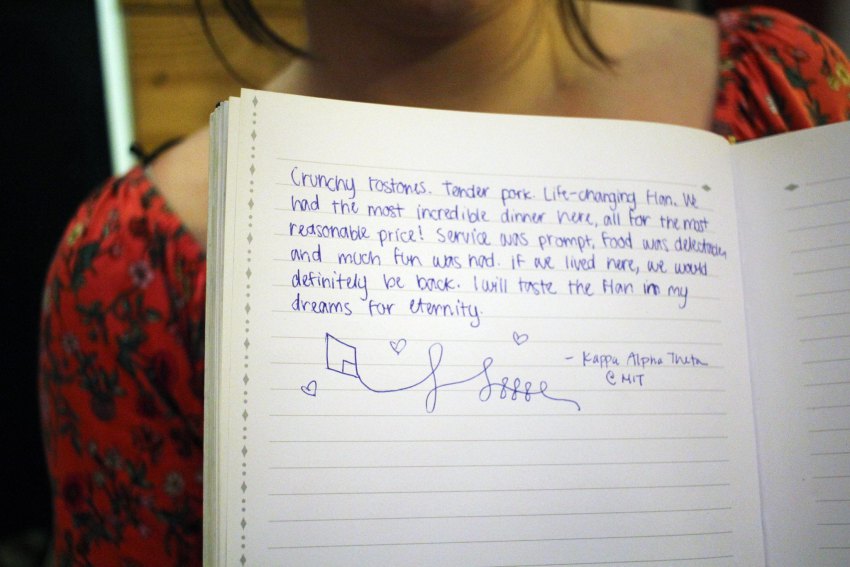 Crunchy tostones. Tender pork. Life-changing flan. We
had the most incredible dinner here, all for the most
reasonable price! Service was prompt, food was delectable,
and much fun was had. if we lived here, we would
definitely be back. I will taste the flan in my
dreams for eternity.
- Kappa Alpha Theta
@ MIT